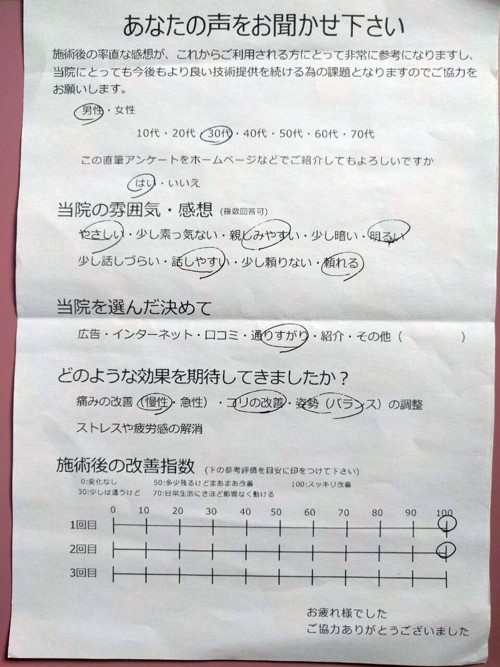 あなたの声をお聞かせ下さい
施術後の率直な感想が、これからご利用される方にとって非常に参考になりますし、
当院にとっても今後もより良い技術提供を続ける為の課題となりますのでご協力を
お願いします。
男性・女性
10代・20代・30代・40代・50代・60代・70代
この直筆アンケートをホームページなどでご紹介してもよろしいですか
はい・いいえ
当院の雰囲気・感想 (複数回答可)
やさしい・少し素っ気ない・親しみやすい・少し暗い・明るい
少し話しづらい・話しやすい・少し頼りない・頼れる
当院を選んだ決めて
広告・インターネット・口コミ・通りすがり・紹介・その他（　　　）
どのような効果を期待してきましたか？
痛みの改善（慢性・急性）・コリの改善・姿勢（バランス）の調整
ストレスや疲労感の解消
施術後の改善指数 (下の参考評価を目安に印をつけて下さい)
0:変化なし 50:多少残るけどまあまあ改善 100:スッキリ改善
30:少しは違うけど 70:日常生活にさほど影響なく動ける
0 10 20 30 40 50 60 70 80 90 100
1回目
2回目
3回目
お疲れ様でした
ご協力ありがとうございました